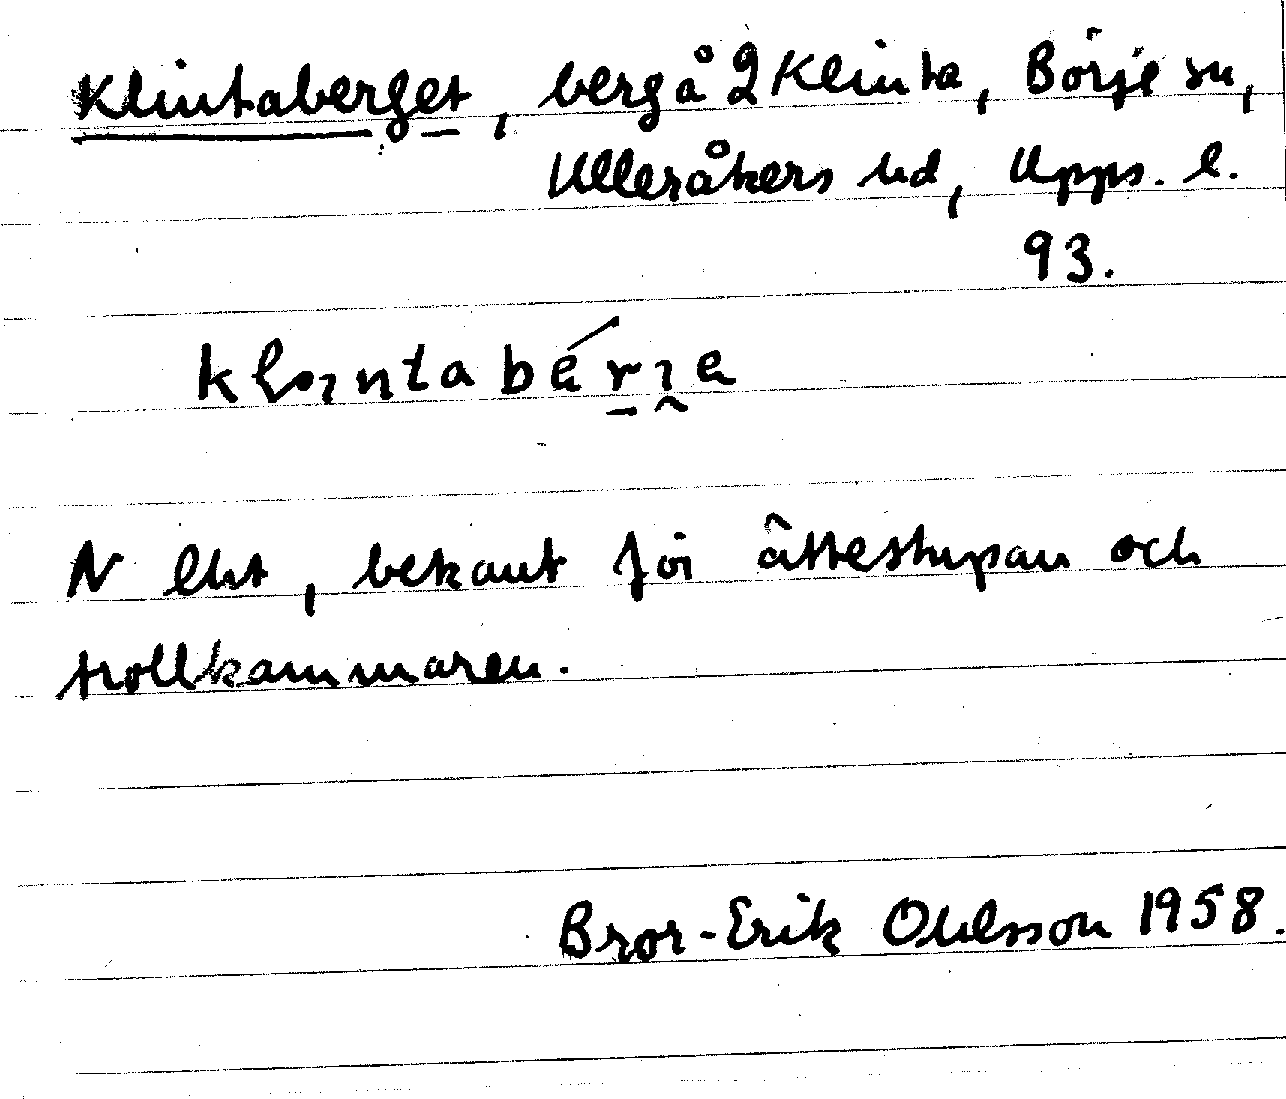 Klintaberget, berg å 2 Klinta, Börje sn,
Ulleråkers hd, Upps. l.
93.
klıntabérı̯e
N Ekt, bekant för ättestupan och
trollkammaren.
Bror-Erik Ohlsson 1958.